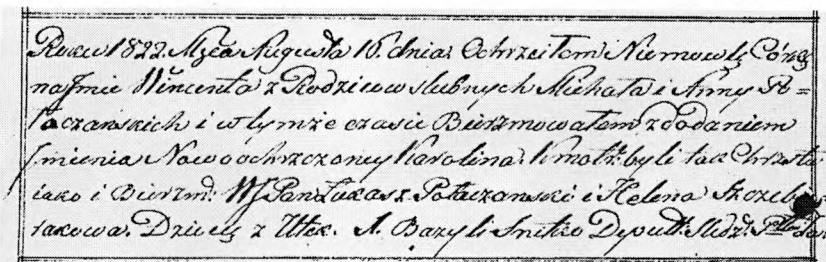 Roku 1822. Mŗca Augusta 16. dnia. Ochrzciłem Niemowlę Córę
na Jmie Wincenta z Rodziców slubnych Michała i Anny Po=
łaczanskich i w tymże czasie Bierzmowałem z dodaniem
Jmienia Nowoochrzczoney Karolina. Kmotr. byli tak Chrztu
iako i Bierzm. W Pan Łukasz Połaczanski i Helena
Dziecię z X. Bazyli Deput.